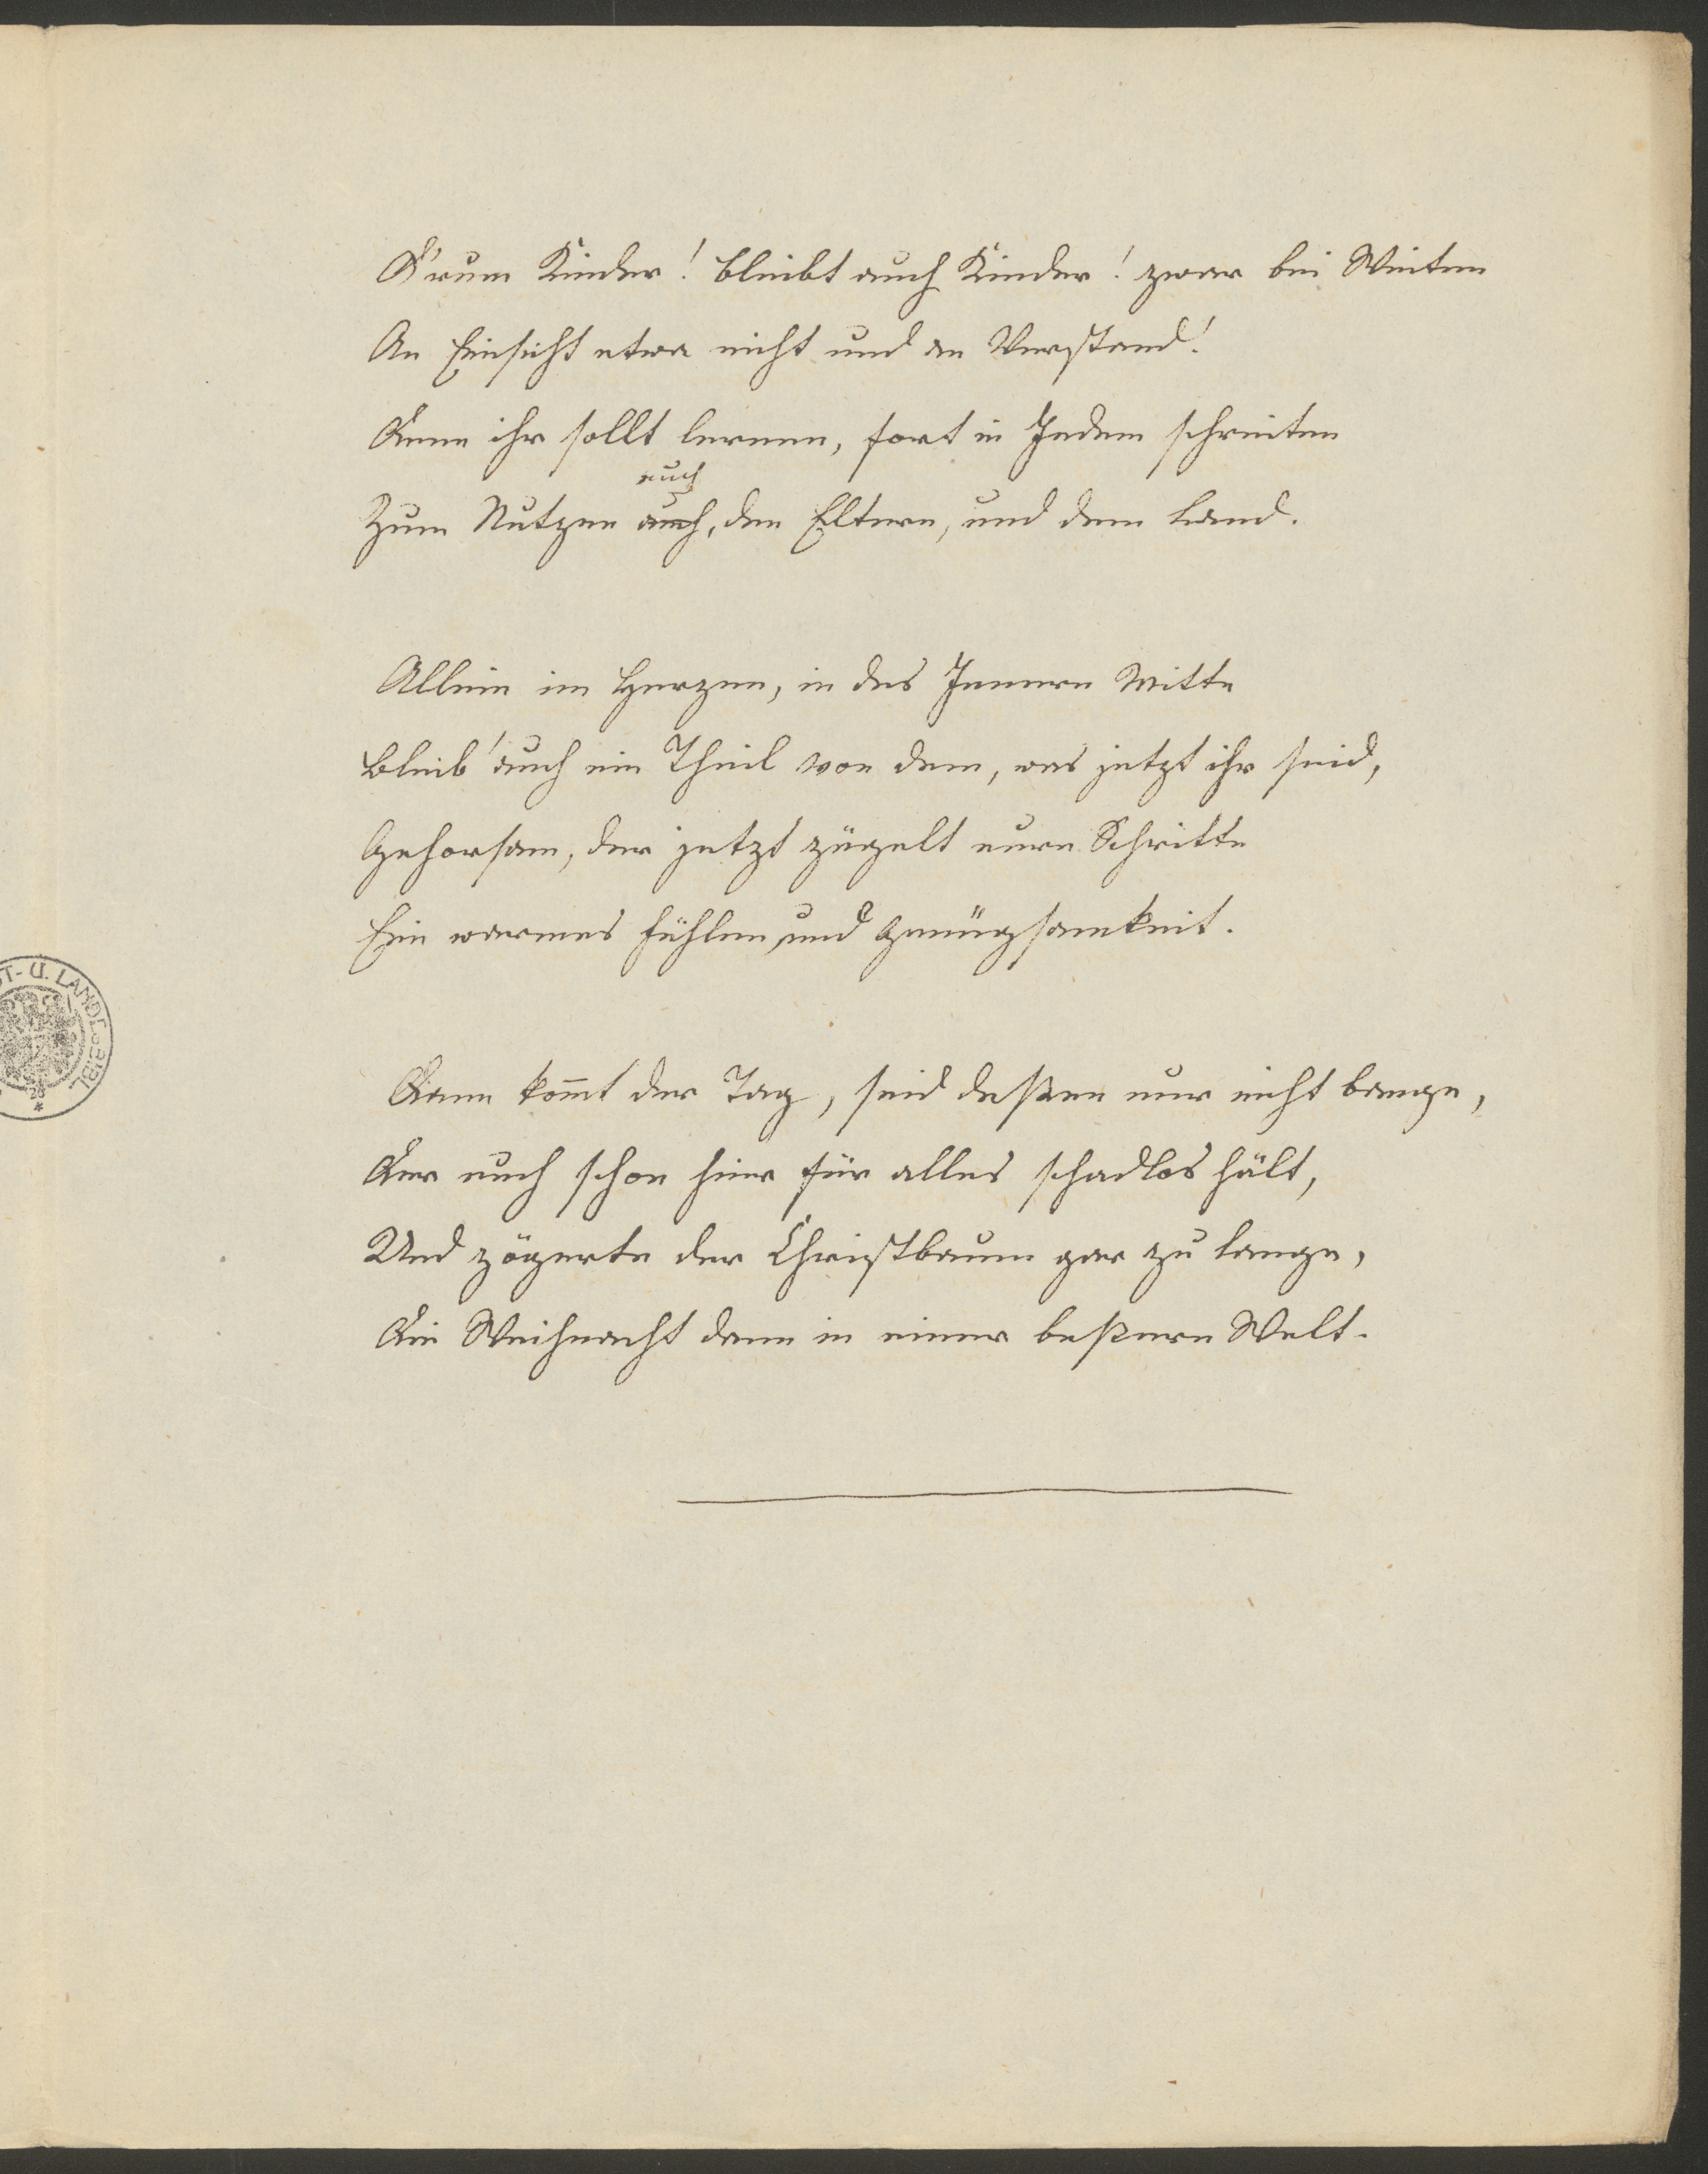 D'rum Kinder! bleibt auch Kinder! zwar bei Weitem
An Einsicht etwa nicht und an Verstand!
Denn ihr sollt lernen, fort in Jedem schreiten
euch
Zum Nutzen auch, den Eltern, und dem Land.
Allein im Herzen, in des Innern Mitte
Bleib' auch ein Theil von dem, was jetzt ihr seid,
Gehorsam, der jetzt zügelt eure Schritte
Ein warmes Fühlen, und Genügsamkeit.
Dann kom̄t der Tag, seid deßen nur nicht bange,
Der euch schon hier für alles schadlos hält,
Und zögerte der Christbaum gar zu lange,
Die Weihnacht dann in einer beßern Welt.
T- U. LANDESBIBL.